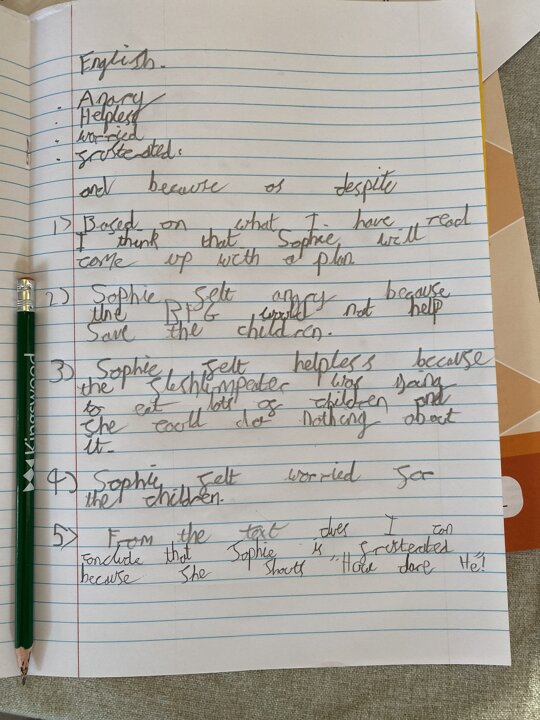 English.
. Angry
. Helpless
. worried
. frusterated.
and because as despite
1) Based on what I have read
I think that Sophie will
come up with a plan.
2) Sophie felt angry because
the BFG would not help
Save the children.
3) Sophie felt helpless because
the fleshlumpeater was going
to eat lots of children and
She could do nothing about
it.
4) Sophie felt worried for
the children.
5) From the text clues I can
conclude that Sophie is frusterated
because She Shouts "How dare He"!
Kingswood